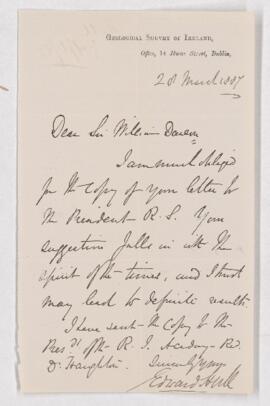 GEOLOGICAL SURVEY OF IRELAND,
Office, 14 Hume Street, Dublin,
28 March 1887
Dear Sir William Dawson
I am much obliged
for the Copy of your letter to
the President R. S. Your
suggestion falls in with the
spirit of the times, and I trust
may lead to definite results.
I have sent the Copy to the
Presdt of the R. I. Academy - Rev
Dr Haughton.
Sincerely yours
Edward Hull